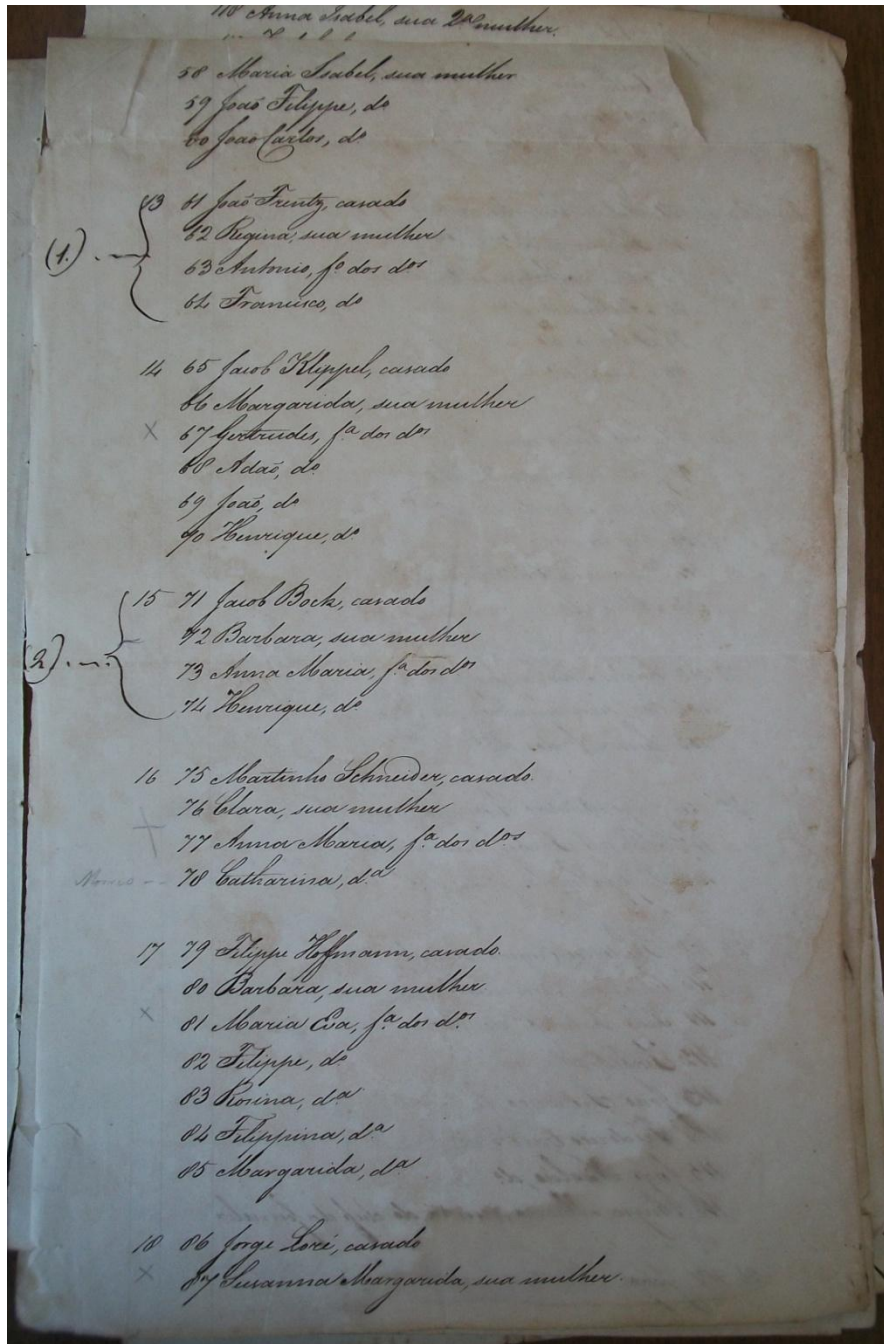 118 Anna Isabel, sua 2ª mulher.
58 Maria Isabel, sua mulher
59 João Filippe, dº
60 João Carlos, dº
13 61 João Trentz, casado
(1.)
62 Regina, sua mulher
63 Antonio, fº dos dos
64 Francisco, dº
14 65 Jacob Klippel, casado
66 Margarida, sua mulher
X 67 Gertrudes, fª dos dos
68 Adaõ, dº
69 João, dº
70 Henrique, dº
15 71 Jacob Bock, casado
72 Barbara, sua mulher
(2)
73 Anna Maria, fª dos dos
74 Henrique, dº
16 75 Martinho Schneider, casado.
76 Clara, sua mulher
77 Anna Maria, fª dos dos
78 Catharina, dª
17 79 Filippe Hoffmann, casado.
80 Barbara, sua mulher
X 81 Maria Eva, fª dos dos
82 Filippe, dº
83 Rosina, dª
84 Filippina, dª
85 Margarida, dª
18 86 Jorge Loré, casado
X 87 Susanna Margarida, sua mulher.